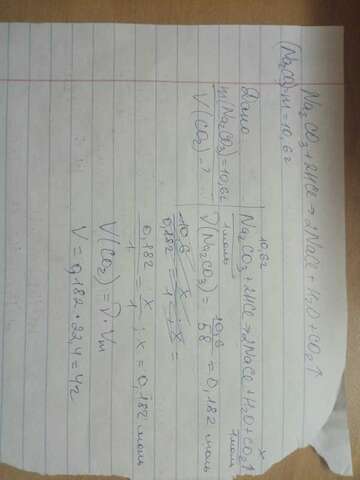 Na₂CO₃ + 2HCl → 2NaCl + H₂O + CO₂↑
(Na₂CO₃ m = 10,6г
Дано
m(Na₂CO₃) = 10,6г
V(CO₂) - ?
10,6г x
Na₂CO₃ + 2HCl → 2NaCl + H₂O + CO₂↑
1моль 1моль
ν(Na₂CO₃) = 10,6/58 = 0,182 моль
0,182/1 = x/1 ; x = 0,182 моль
V(CO₂) = ν · Vm
V = 0,182 · 22,4 = 4г